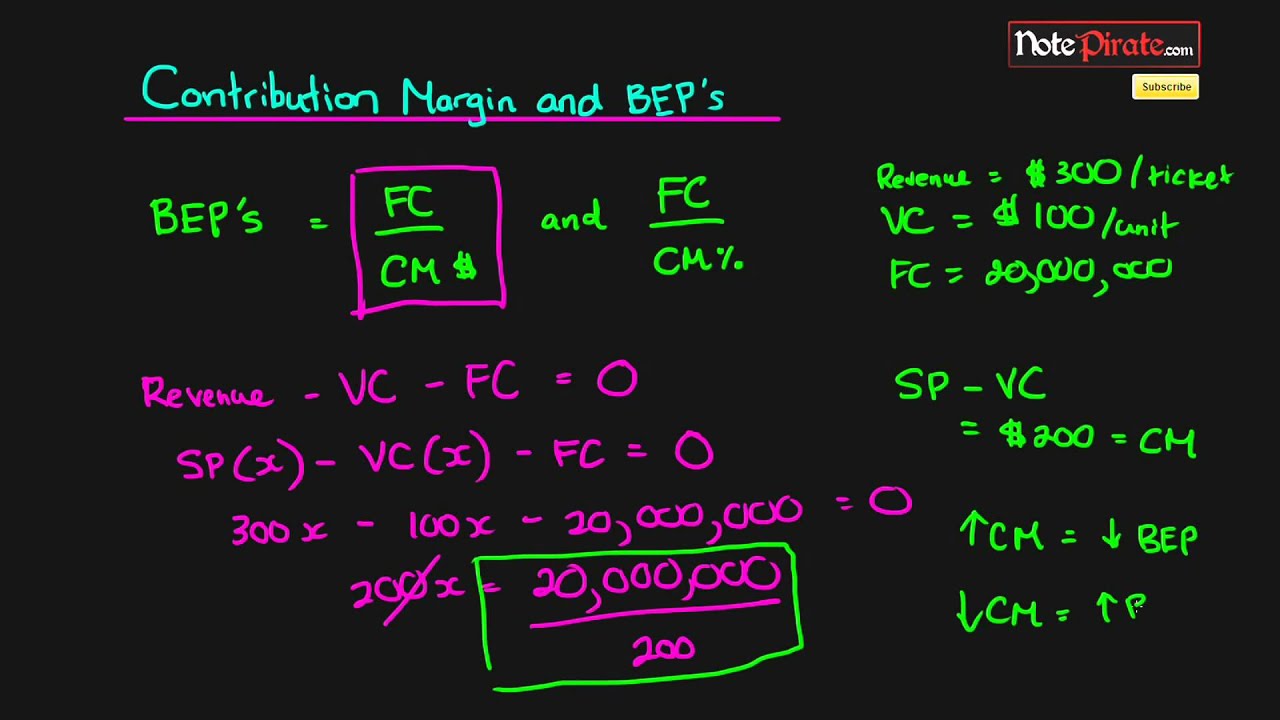 NotePirate.com
Subscribe
Contribution Margin and BEP's
BEP's = FC / CM $ and FC / CM %
Revenue = $300/ticket
VC = $100/unit
FC = 20,000,000
Revenue - VC - FC = 0
SP(x) - VC(x) - FC = 0
300x - 100x - 20,000,000 = 0
200x = 20,000,000 / 200
SP - VC
= $200 = CM
↑CM = ↓ BEP
↓CM = ↑